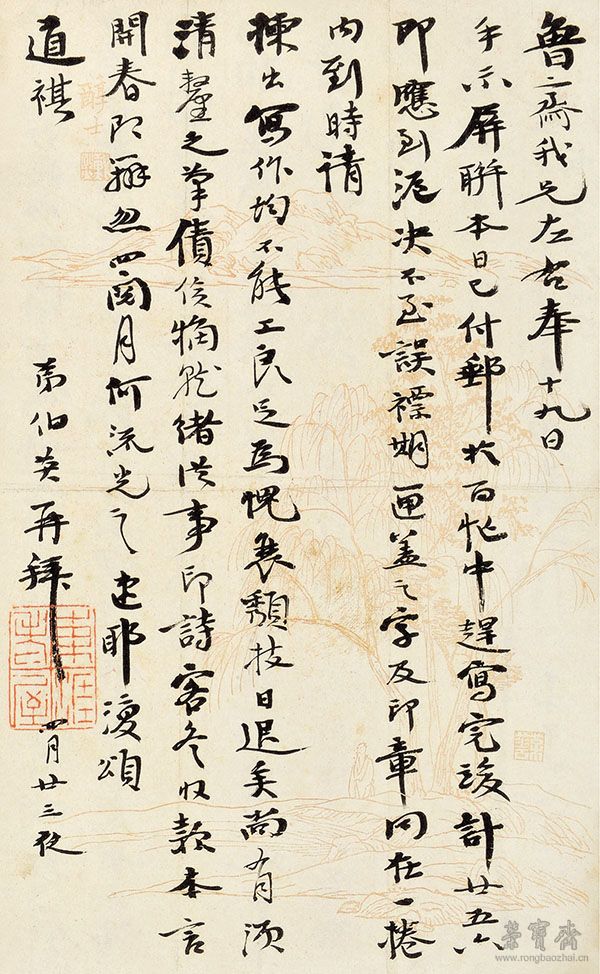 魯齋我兄左右奉十九日
手示屏聯本日已付郵於百忙中趕寫完竣計廿五六
即應到滬決不至誤裱期匣蓋之字及印章同在一捲
內到時請
揀出寫作均不能工良足爲愧衰頹技日退矣尚有須
清釐之筆債俟緒事印詩客冬收款本言
開春即辦忽四閱月何流光之速耶復頌
道祺
弟伯英再拜 四月廿三夜
榮寶齋
www.rongbaozhai.cn